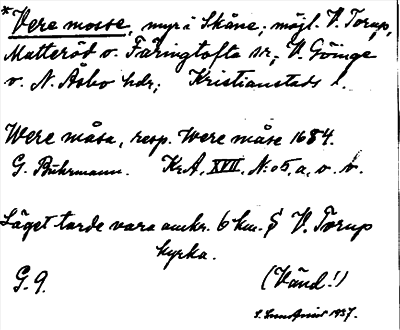 *Vere mosse, myr i Skåne; möjl. V. Torup,
Matteröd o. Färingtofta snr, V. Göinge
o. N. Åsbo hdr; Kristianstads l.
Were måsa, resp. Were måse 1684.
G. Buhrmann. KrA, XVII, N:o 5, a, o. b.
Läget torde vara omkr. 6 km. S V. Torup
kyrka.
G. 9.
(Vänd!)
1937.